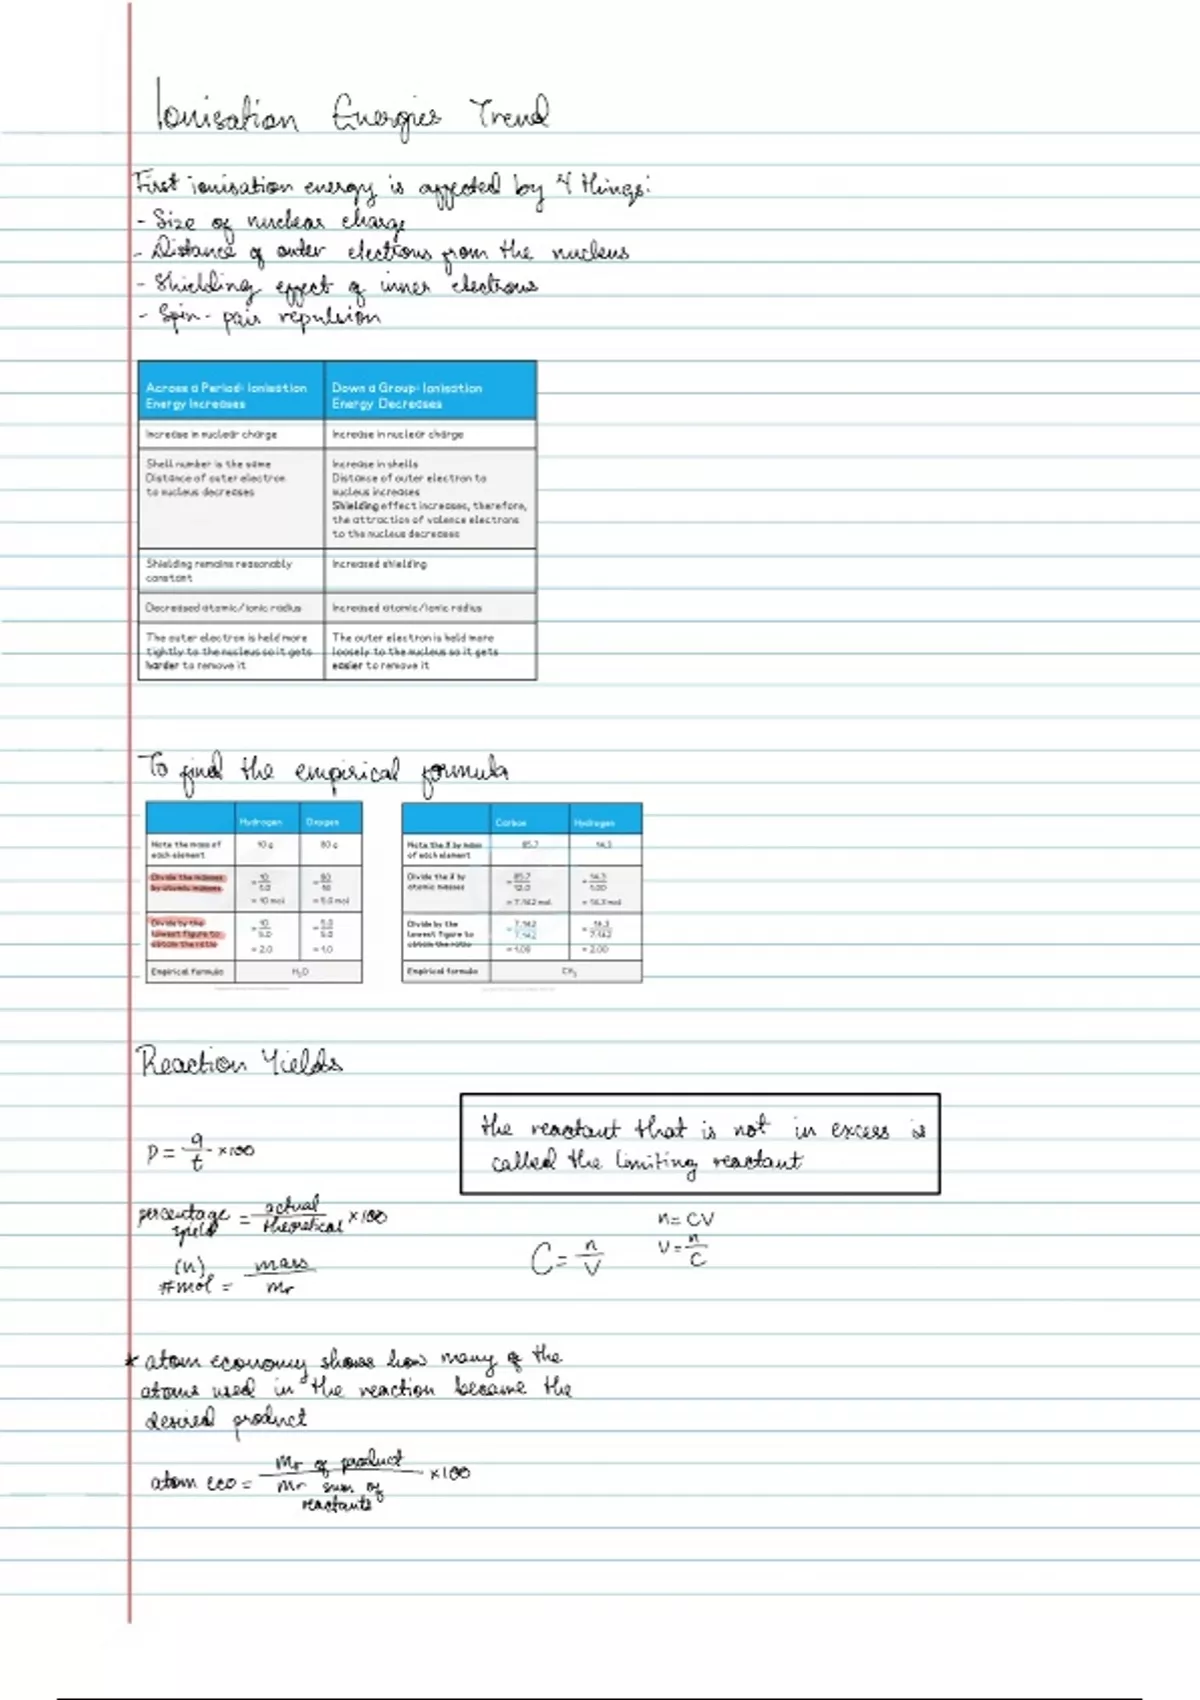 Ionisation Energies Trend
First ionisation energy is affected by 4 things:
- Size of nuclear charge
- Distance of outer electrons from the nucleus
- Shielding effect of inner electrons
- Spin-pair repulsion
Across a Period: Ionisation Energy Increases
Down a Group: Ionisation Energy Decreases
Increase in nuclear charge
Increase in nuclear charge
Shell number is the same
Distance of outer electron
to nucleus decreases
Increase in shells
Distance of outer electron to
nucleus increases
Shielding effect increases, therefore,
the attraction of valence electrons
to the nucleus decreases
Shielding remains reasonably
constant
Increased shielding
Decreased atomic/ionic radius
Increased atomic/ionic radius
The outer electron is held more
tightly to the nucleus so it gets
harder to remove it
The outer electron is held more
loosely to the nucleus so it gets
easier to remove it
To find the empirical formula
Hydrogen Oxygen
Note the mass of
each element
10 g 80 g
Divide the masses
by atomic masses
= 10/1.0 = 80/16
= 10 mol = 5.0 mol
Divide by the
lowest figure to
obtain the ratio
= 10/5.0 = 5.0/5.0
= 2.0 = 1.0
Empirical formula H₂O
Carbon Hydrogen
Note the % by mass
of each element
85.7 14.3
Divide the % by
atomic masses
= 85.7/12.0 = 14.3/1.00
= 7.142 mol = 14.3 mol
Divide by the
lowest figure to
obtain the ratio
= 7.142/7.142 = 14.3/7.142
= 1.00 = 2.00
Empirical formula CH₂
Reaction Yields
the reactant that is not in excess is
called the limiting reactant
P = q/t × 100
percentage yield = actual/theoretical × 100
n = CV
C = n/V
V = n/C
(n)
#mol = mass/Mr
* atom economy shows how many of the
atoms used in the reaction became the
desired product
atom eco = Mr of product/Mr sum of reactants × 100